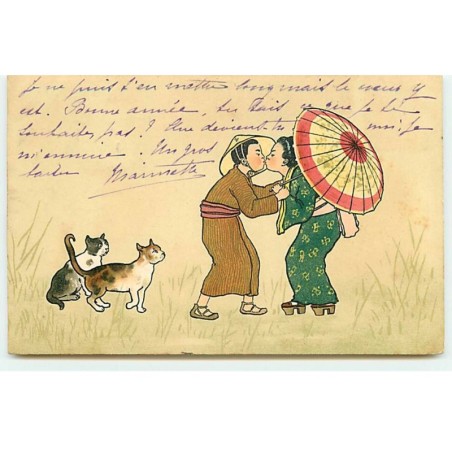 Je ne puis t'en mettre long mais le cœur y
est. Bonne année, tu sais ce que je te
souhaite, pas ? Que deviens-tu moi je
m'ennuie Un gros
Marinette